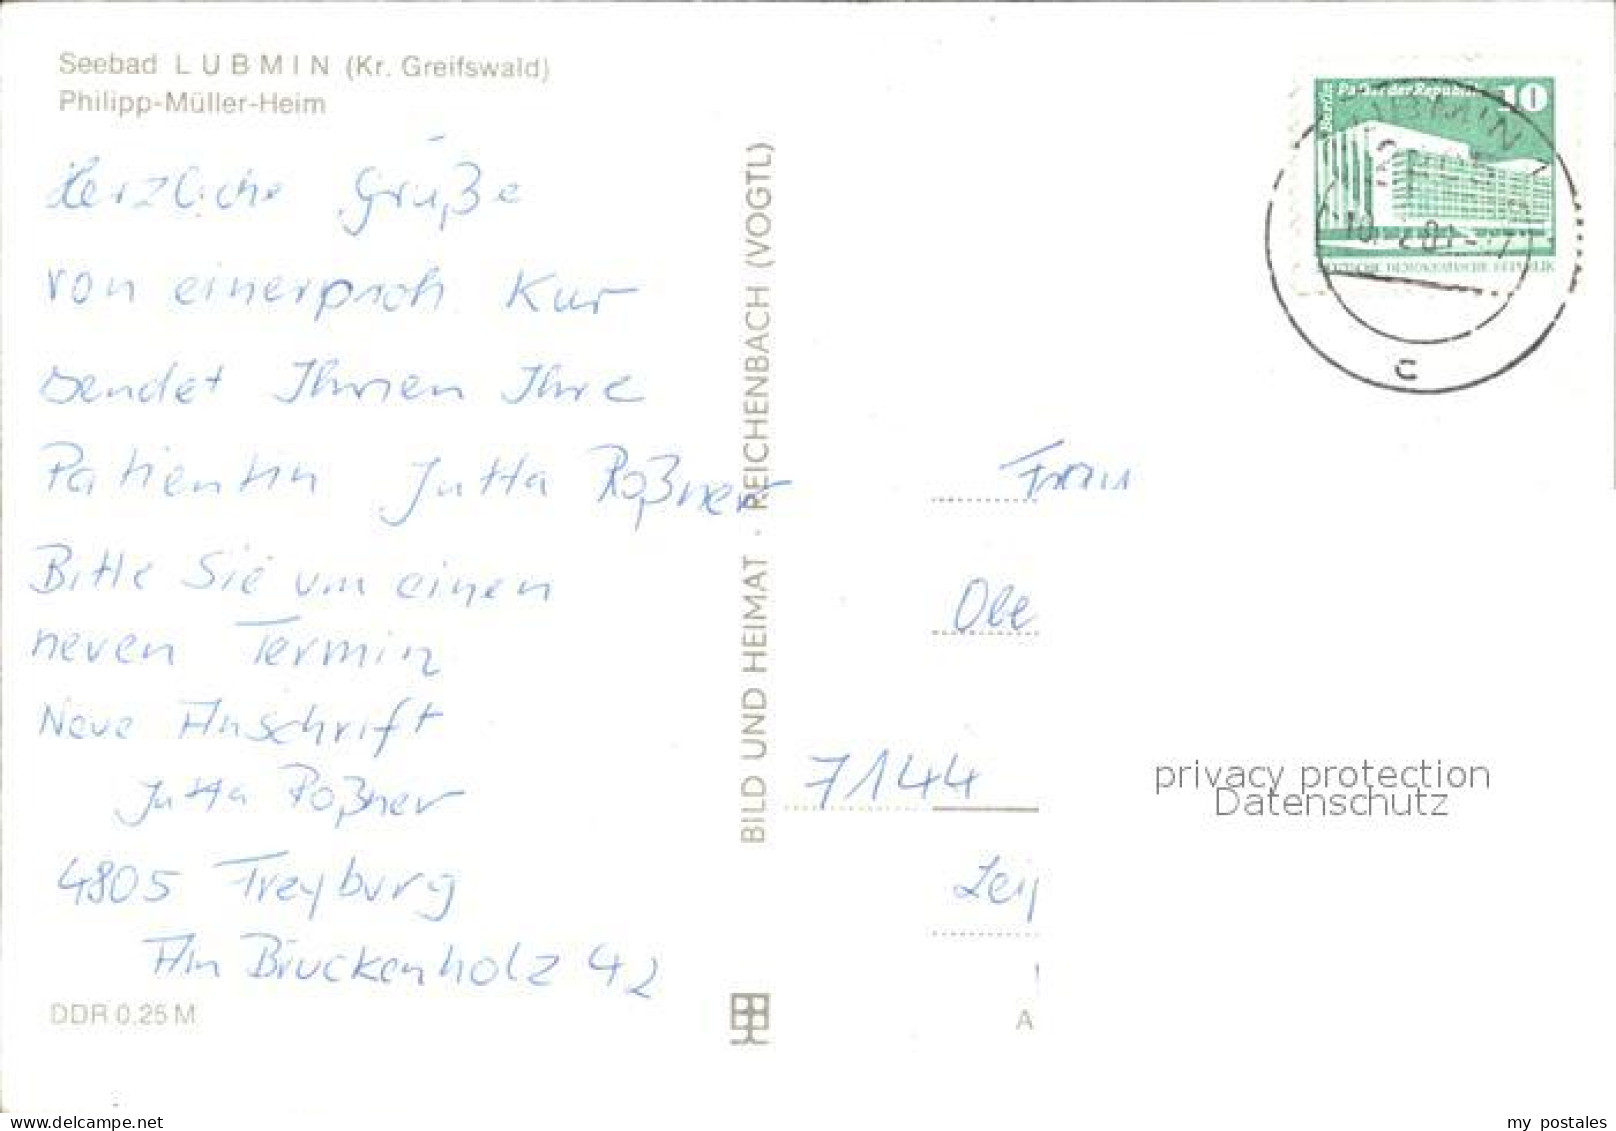 Seebad LUBMIN (Kr. Greifswald)
Philipp-Müller-Heim
Herzliche Grüße
von einer proph. Kur
sendet Ihnen Ihre
Patientin Jutta Roßner
Bitte Sie um einen
neuen Termin
Neue Anschrift
Jutta Roßner
4805 Freyburg
Am Brückenholz 42
DDR 0,25 M
BILD UND HEIMAT · REICHENBACH (VOGTL)
Berlin
Palast der Republik
10
DEUTSCHE DEMOKRATISCHE REPUBLIK
LUBMIN
c
Frau
7144
Leip
A
privacy protection
Datenschutz
www.delcampe.net
my_postales